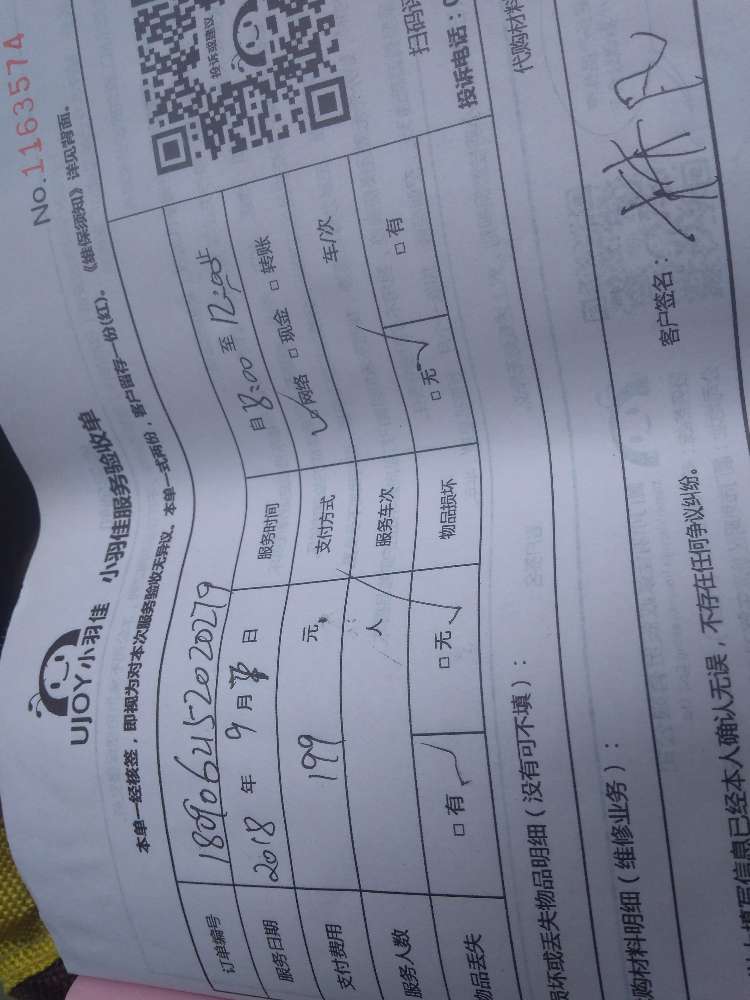 No.1163574
UJOY小羽佳 小羽佳服务验收单
本单一经核签，即视为对本次服务验收无异议、本单一式两份，客户留存一份(红)。《维保须知》详见背面。
投诉或建议
扫码
投诉电话：0
代购材料
订单编号
服务日期 2018 年 9 月 日 服务时间 自 8:00 至 12:00止
支付费用 199 元 支付方式 ✓网络 □现金 □转账
服务人数 人 服务车次 车/次
物品丢失 □有 □无 物品损坏 □无 □有
损坏或丢失物品明细（没有可不填）：
购材料明细（维修业务）：
填写信息已经本人确认无误，不存在任何争议纠纷。
客户签名：